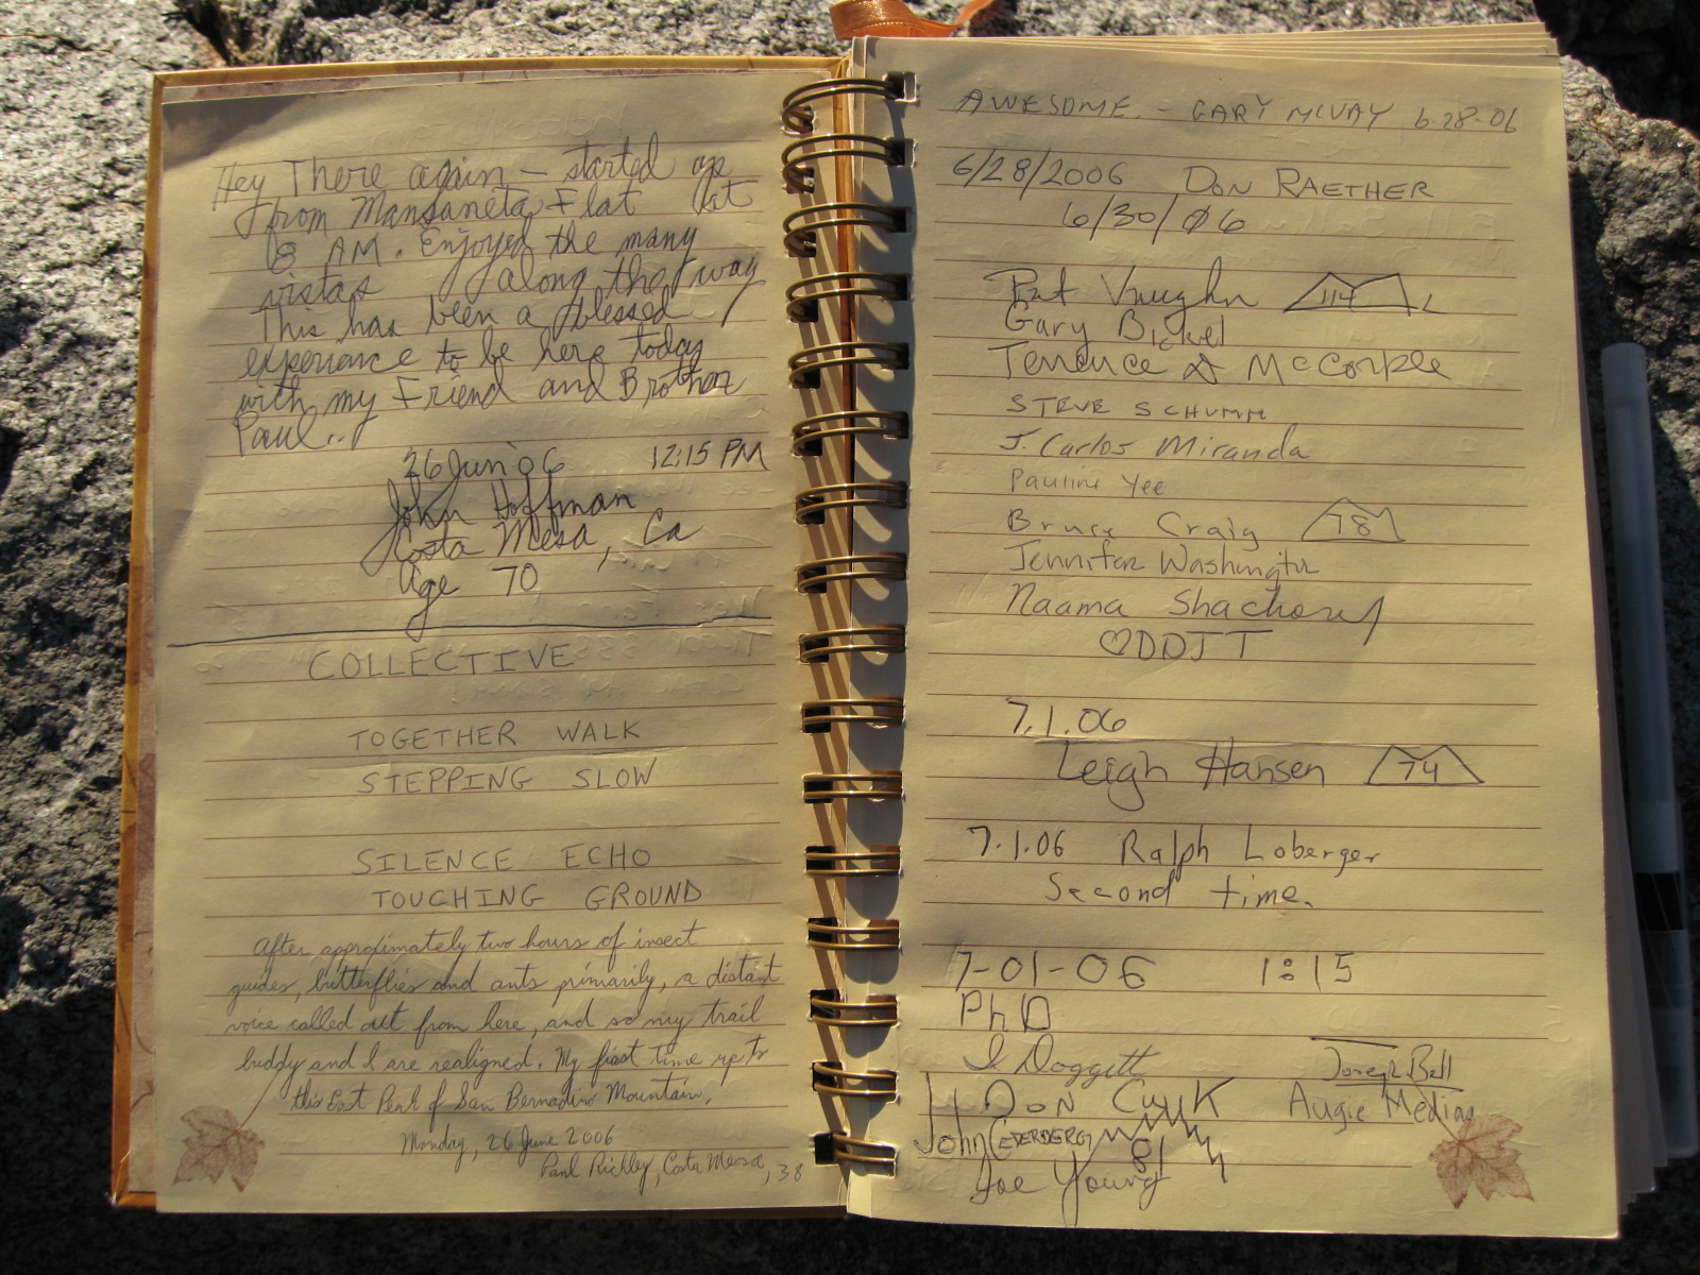 Hey There again – started up
from Mansaneta Flat at
8 AM. Enjoyed the many
vistas along the way
This has been a blessed
experience to be here today
with my Friend and Brother
Paul..
26 Jun 06 12:15 PM
John Hoffman
Costa Mesa, Ca
Age 70
COLLECTIVE
TOGETHER WALK
STEPPING SLOW
SILENCE ECHO
TOUCHING GROUND
After approximately two hours of insect
guides, butterflies and ants primarily, a distant
voice called out from here, and so my trail
buddy and I are realigned. My first time up to
this East Peak of San Bernadino Mountain.
Monday, 26 June 2006
Paul Richley, Costa Mesa, 38
AWESOME. - GARY MCVAY 6-28-06
6/28/2006 DON RAETHER
6/30/06
Pat Vaughn 114 L
Gary Bickel
Terrence A McCorkle
STEVE SCHUMM
J. Carlos Miranda
Pauline Yee
Bruce Craig 78
Jennifer Washington
Naama Shachory
♡DDJT
7.1.06
Leigh Hansen 74
7.1.06 Ralph Loberger
Second time.
7-01-06 1:15
PhD
I Doggett
Joseph Bell
DON Augie Medina
John CEDERBERG 81
Joe Young